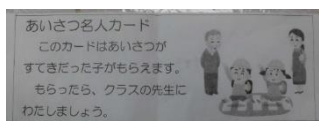 あいさつ名人カード
このカードはあいさつが
すてきだった子がもらえます。
もらったら、クラスの先生に
わたしましょう。